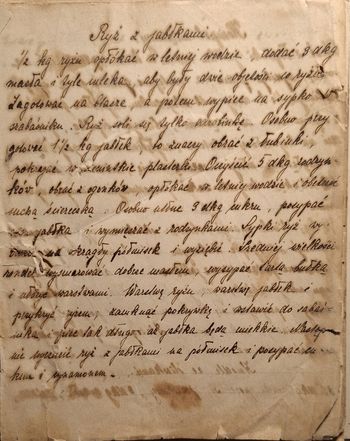 Ryż z jabłkami
1/2 kg ryżu opłókać w letniej wodzie, dodać 3 dkg
masła i tyle mleka, aby były dwie objętości co ryżu
Zagotować na blasze a potem wypiec na sypko w
szabaśniku. Ryż soli się tylko Osobno przy
gotować 1/2 kg jabłek to znaczy obrać z łubinki
pokrajać w cienkie plasterki Oczyścić 5 dkg rodzyn
ków, obrać z ogonków, opłókać w letniej wodzie i obetrzeć
suchą ścierecką. Osobno utłuc 3 dkg cukru, posypać
jabłka i wymieszać z rodzynkami. Sypki ryż wy
na okrągły półmisek i wyziębić Średniej wielkości
rondel wysmarować dobrze masłem, wysypać tartą bułką
i układać warstwami. Warstwę ryżu, warstwę jabłek i
przykryć ryżem, zamknąć pokrywką, wstawić do szabaś-
nika i piec tak długo, aż jabłka będą miekkie. Następ-
nie wyrzucić ryż z jabłkami na półmisek i posypać cu-
krem i cynamonem.